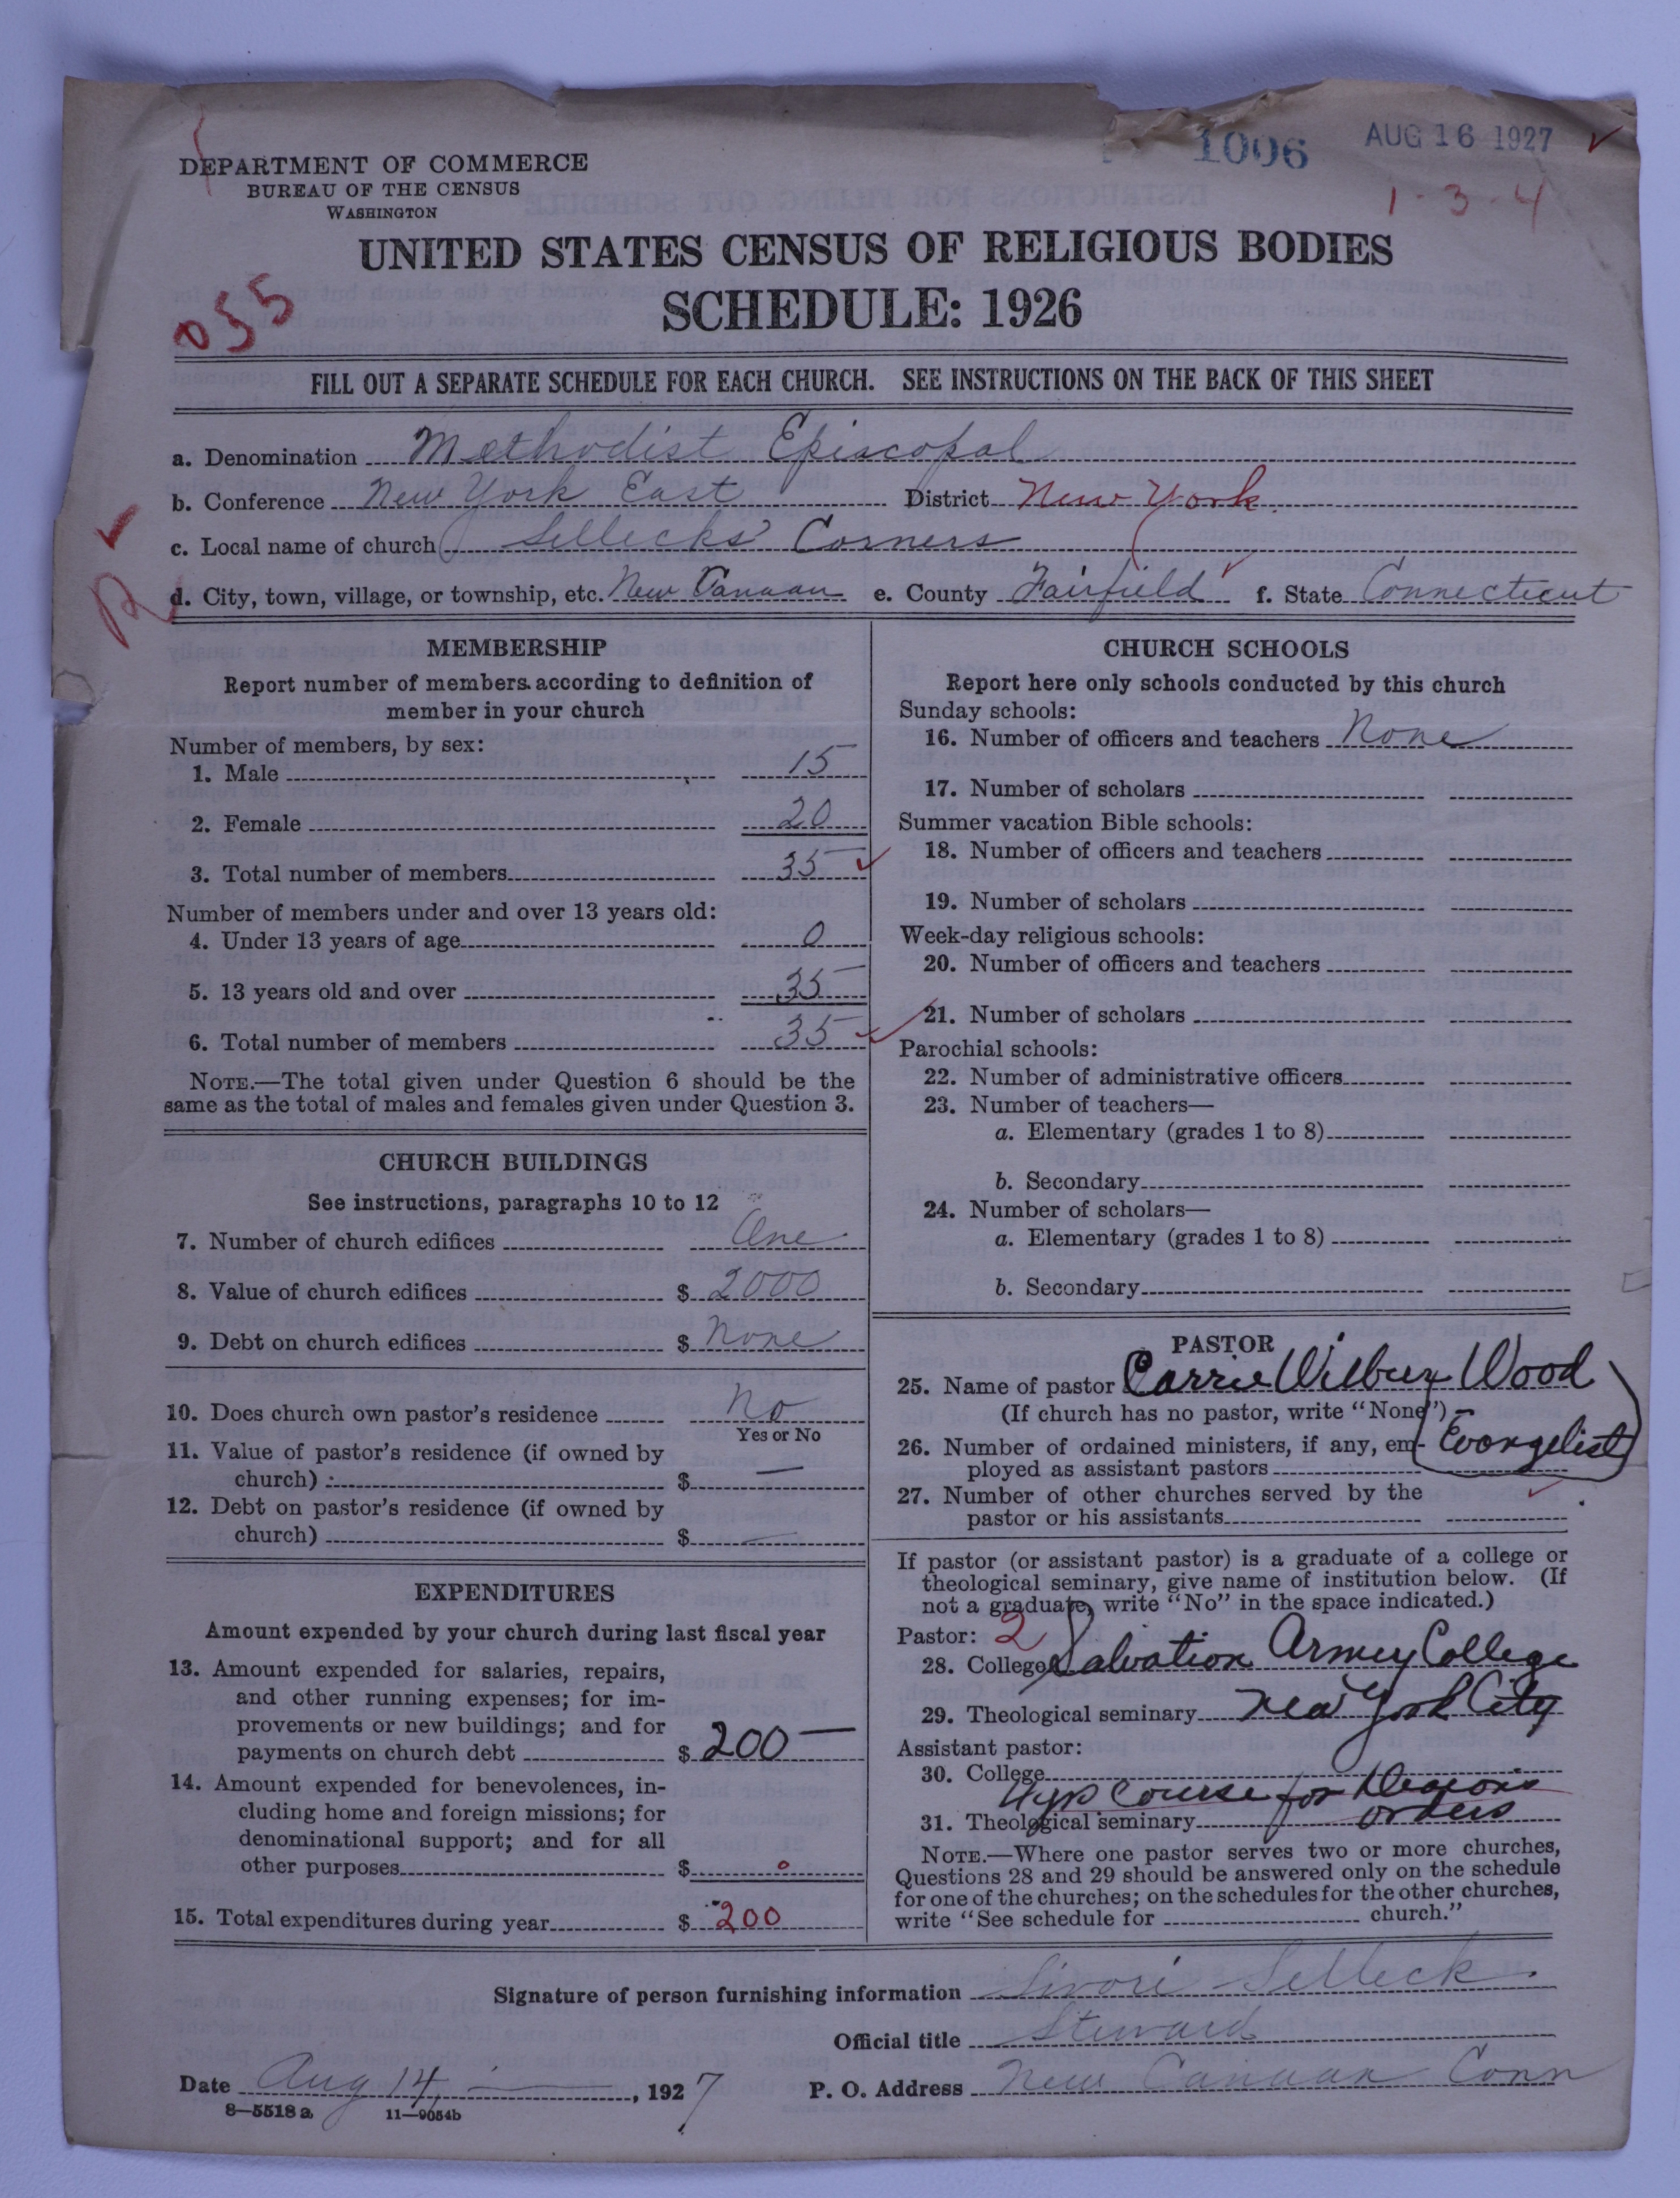 1006 AUG 16 1927
1-3-4
DEPARTMENT OF COMMERCE
BUREAU OF THE CENSUS
WASHINGTON
UNITED STATES CENSUS OF RELIGIOUS BODIES
SCHEDULE: 1926
055
FILL OUT A SEPARATE SCHEDULE FOR EACH CHURCH. SEE INSTRUCTIONS ON THE BACK OF THIS SHEET
a. Denomination Methodist Episcopal
b. Conference New York East District New York
c. Local name of church Sellecks Corners
R
d. City, town, village, or township, etc. New Canaan e. County Fairfield f. State Connecticut
MEMBERSHIP
Report number of members according to definition of
member in your church
Number of members, by sex:
1. Male 15
2. Female 20
3. Total number of members 35
Number of members under and over 13 years old:
4. Under 13 years of age 0
5. 13 years old and over 35
6. Total number of members 35
NOTE.—The total given under Question 6 should be the
same as the total of males and females given under Question 3.
CHURCH BUILDINGS
See instructions, paragraphs 10 to 12
7. Number of church edifices One
8. Value of church edifices $ 2000
9. Debt on church edifices $ None
10. Does church own pastor's residence No
Yes or No
11. Value of pastor's residence (if owned by
church) $ —
12. Debt on pastor's residence (if owned by
church) $ —
EXPENDITURES
Amount expended by your church during last fiscal year
13. Amount expended for salaries, repairs,
and other running expenses; for im-
provements or new buildings; and for
payments on church debt $ 200 —
14. Amount expended for benevolences, in-
cluding home and foreign missions; for
denominational support; and for all
other purposes $ 0
15. Total expenditures during year $ 200
CHURCH SCHOOLS
Report here only schools conducted by this church
Sunday schools:
16. Number of officers and teachers None
17. Number of scholars
Summer vacation Bible schools:
18. Number of officers and teachers
19. Number of scholars
Week-day religious schools:
20. Number of officers and teachers
21. Number of scholars
Parochial schools:
22. Number of administrative officers
23. Number of teachers—
a. Elementary (grades 1 to 8)
b. Secondary
24. Number of scholars—
a. Elementary (grades 1 to 8)
b. Secondary
PASTOR
25. Name of pastor Carrie Wilbur Wood
(If church has no pastor, write "None") –
26. Number of ordained ministers, if any, em- Evangelist
ployed as assistant pastors
27. Number of other churches served by the
pastor or his assistants
If pastor (or assistant pastor) is a graduate of a college or
theological seminary, give name of institution below. (If
not a graduate, write "No" in the space indicated.)
Pastor: 2
28. College Salvation Army College
29. Theological seminary New York City
Assistant pastor:
30. College
4 yrs Course for Deacons
31. Theological seminary orders
NOTE.—Where one pastor serves two or more churches,
Questions 28 and 29 should be answered only on the schedule
for one of the churches; on the schedules for the other churches,
write "See schedule for church."
Signature of person furnishing information Sivori Selleck
Official title Steward
Date Aug 14, 1927 P. O. Address New Canaan Conn
8—5518a 11—9054b